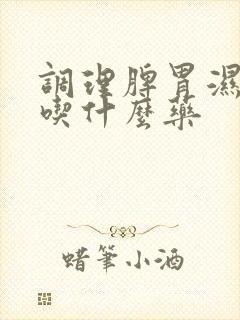 調理脾胃濕
喫什麼藥
蜡筆小酒